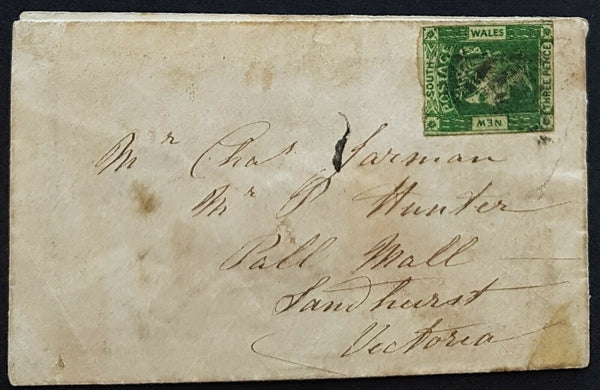 WALES
SOUTH
POSTAGE
THREE PENCE
NEW
Mr Chas Jarman
Mr P Hunter
Pall Mall
Sandhurst
Victoria